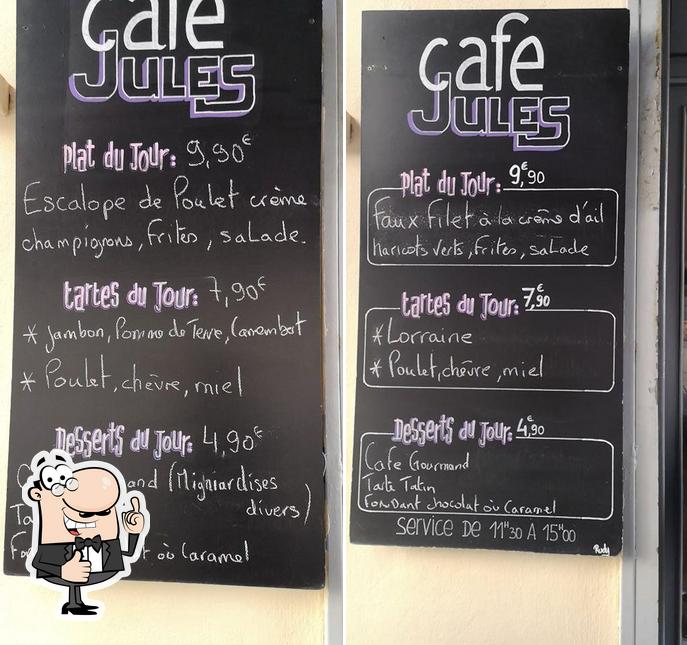 Cafe
JULES
Plat du Jour: 9,90€
Escalope de Poulet crème
champignons, frites, salade.
tartes du Jour: 7,90€
* Jambon, Pomme de Terre, Camembert
* Poulet, chèvre, miel
Desserts du Jour: 4,90€
and (Migniardises
divers)
où Caramel
Cafe
JULES
Plat du Jour: 9€,90
Faux Filet à la crème d'ail
haricots verts, frites, salade
tartes du Jour: 7€,90
* Lorraine
* Poulet, chèvre, miel
Desserts du Jour: 4€,90
Cafe Gourmand
Tarte Tatin
Fondant chocolat où Caramel
SERVICE DE 11H30 A 15H00
Rudy